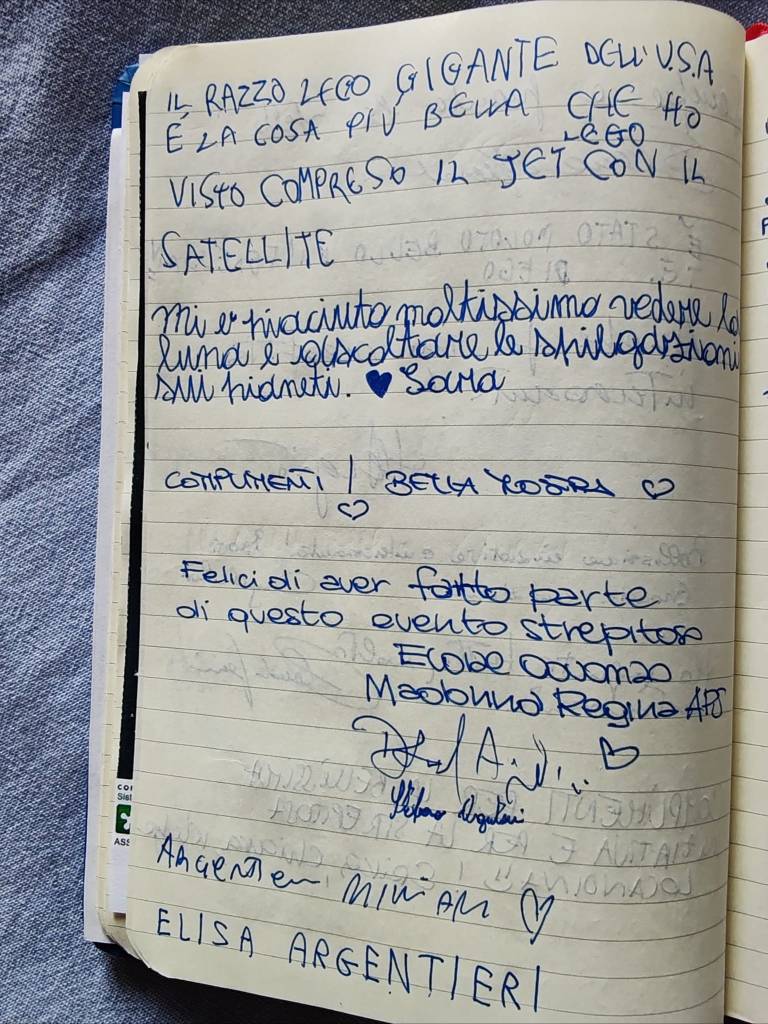 IL RAZZO LEGO GIGANTE DELL'U.S.A
É LA COSA PIÙ BELLA CHE HO
LEGO
VISTO COMPRESO IL JET CON IL
SATELLITE
Mi è piaciuto moltissimo vedere la
luna e ascoltare le spiegazioni
sui pianeti. ♥ Sara
COMPLIMENTI! BELLA MOSTRA ♡
♡
Felici di aver fatto parte
di questo evento strepitoso
Madonna Regina APS
♡
Argentieri Miriam ♡
ELISA ARGENTIERI